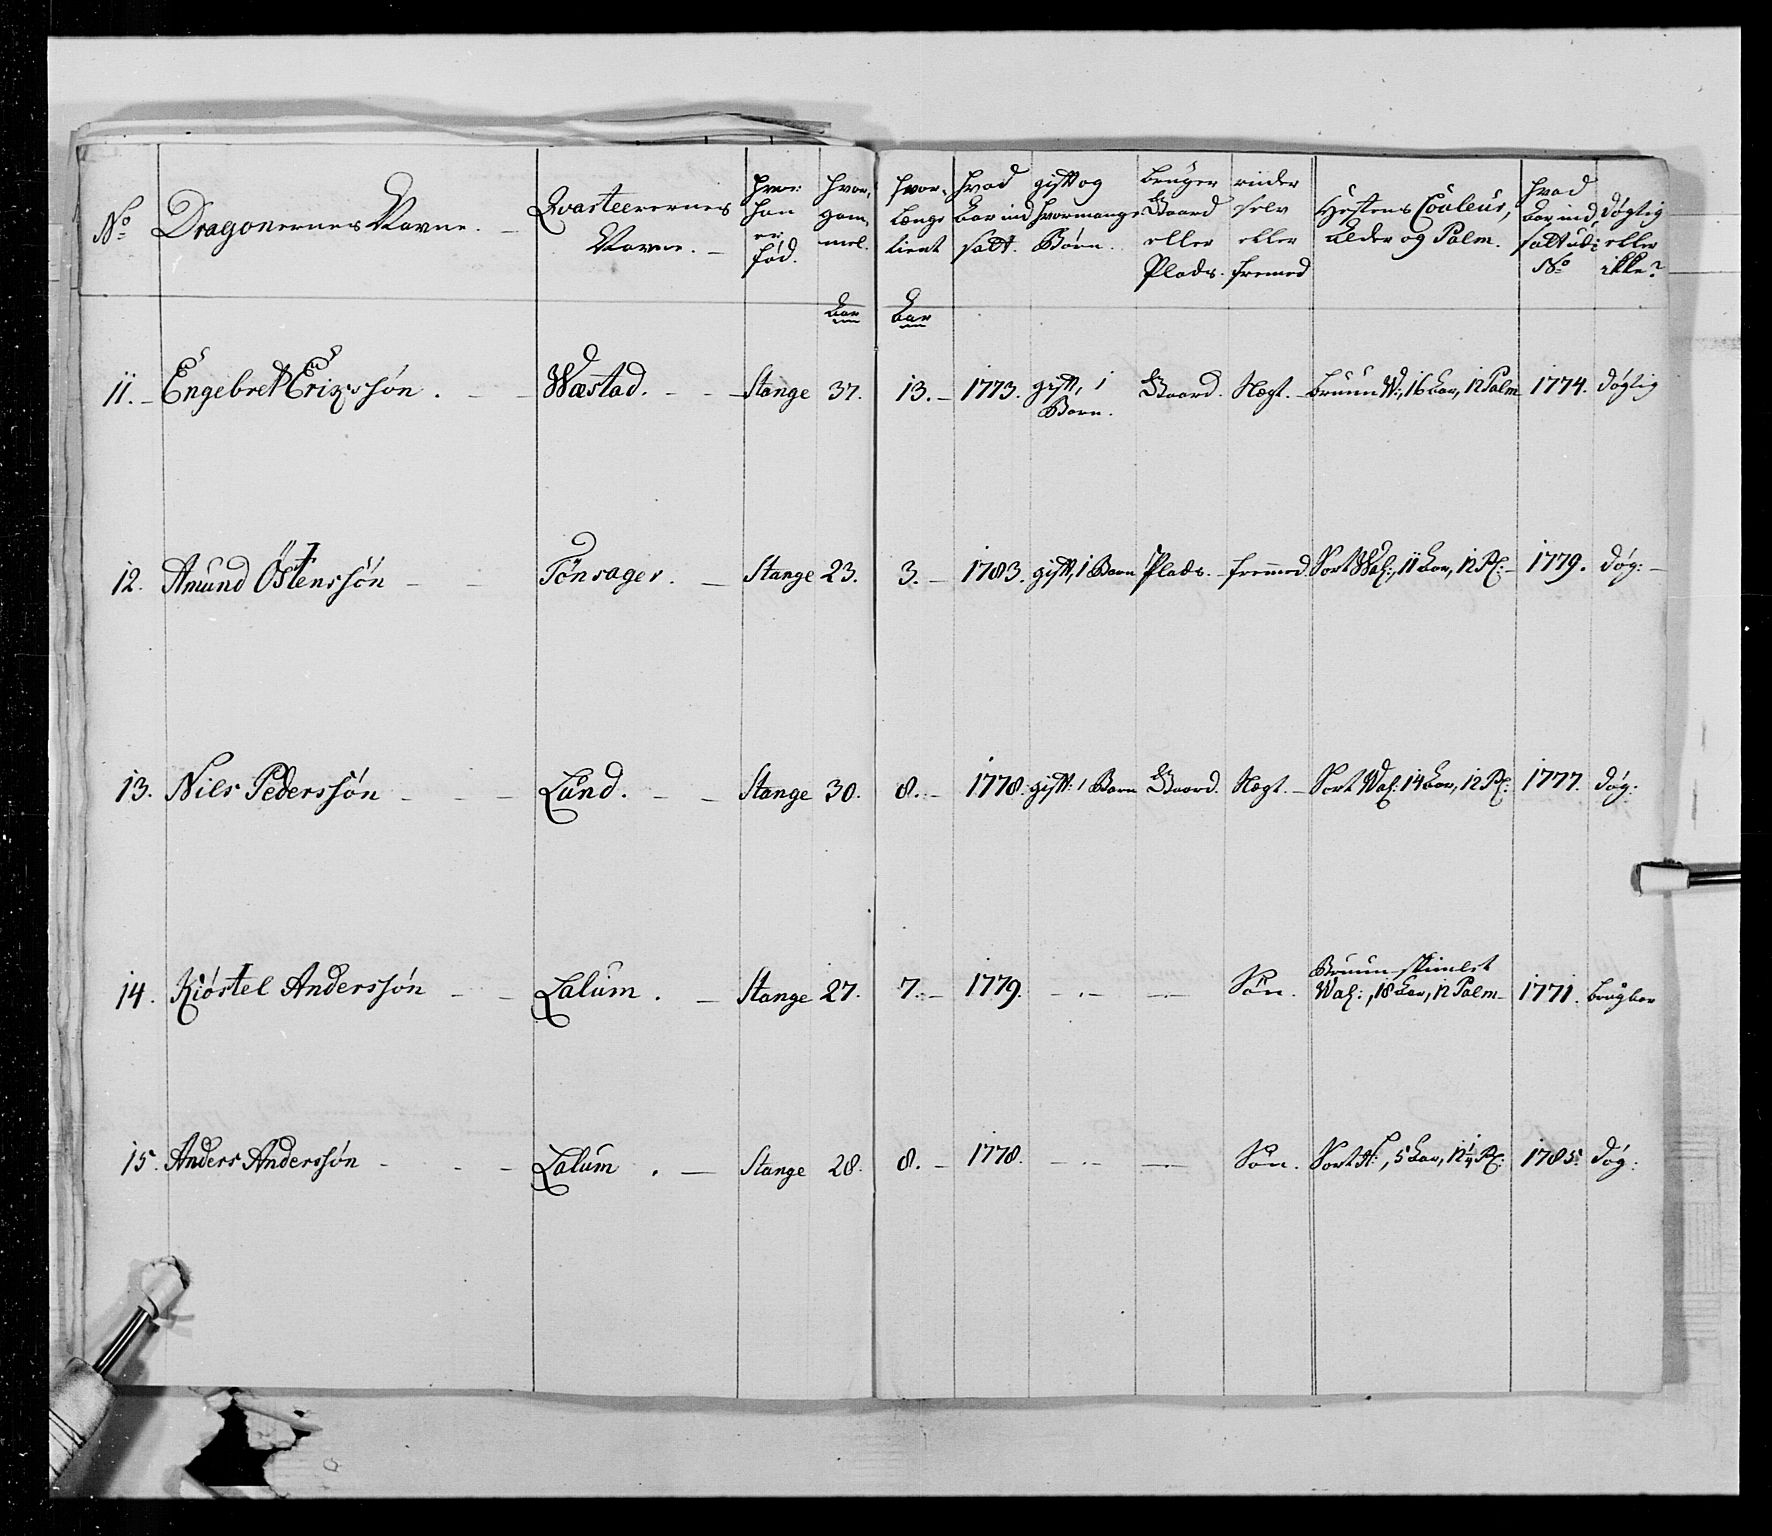 No Dragonernes Navne. Qvarteerernes Navne. hvor han er fød. hvor gammel. hvor længe tient hvad Aar ind satt. gift og hvormange Børn. bruger Gaard eller Plads. rider selv eller fremed Hestens Couleur, Alder og Palm. hvad Aar ind satt udi No døgtig eller ikke?
Aar Aar
11. Engebret Erixssøn. Wæstad. Stange 37. 13. 1773. gift, 1 Barn. Gaard. Nægt. bruun W:, 16 Aar, 12 Palm 1774. døgtig
12. Amund Østenssøn Tønsager. Stange 23. 3. 1783. gift, 1 Barn Plads. fremmed. Sort Wal:, 11 Aar, 12 Pl: 1779. døg:
13. Nils Pederssøn Lund. Stange 30. 8. 1778. gift: 1 Barn Gaard. Nægt. Sort Wal: 14 Aar, 12 Pl: 1777. døg:
14. Kiøstel Anderssøn Lalum. Stange 27. 7. 1779. Søn. Bruun skimlet
Wal:, 18 Aar, 12 Palm 1771. brugbar
15. Anders Anderssøn Lalum. Stange 28. 8. 1778. Søn. Sort H:, 5 Aar, 12 1/4 Pl: 1785. døg: